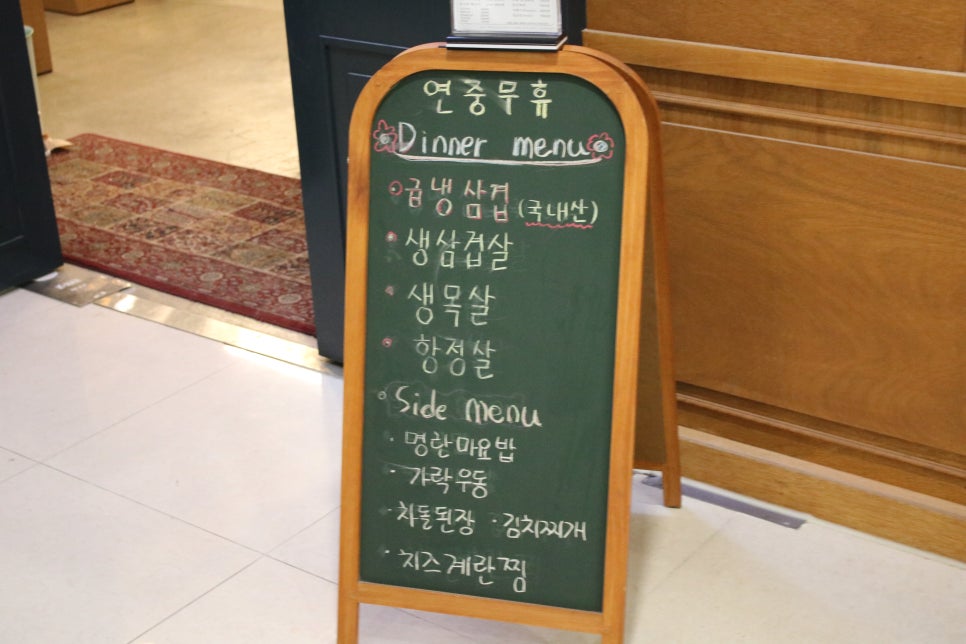 연중무휴
Dinner menu
급냉삼겹 (국내산)
생삼겹살
생목살
항정살
Side menu
· 명란마요밥
· 가락우동
· 차돌된장 · 김치찌개
· 치즈계란찜